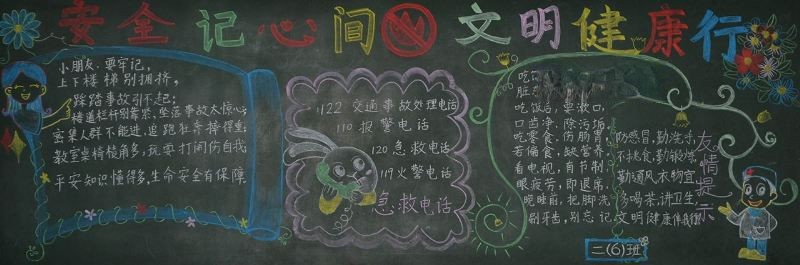 安全记心间 文明健康行
小朋友、要牢记,
上下楼梯别拥挤,
踩踏事故引不起;
楼道栏杆别靠紧、坠落事故太惊心
密集人群不能进、追跑狂奔摔得重;
教室桌椅棱角多,玩耍打闹伤自我
平安知识懂得多,生命安全有保障.
122 交通事故处理电话
110 报警电话
120 急救电话
119 火警电话
急救电话
吃
脏
吃饭后,要漱口,
口齿净,除污垢
吃零食,伤肠胃,
若偏食,缺营养
看电视,首节制
眼疲劳,即退席,
晚睡前,把脚洗
别牙齿,别忘记
防感冒,勤洗手,
不挑食,勤锻炼
勤通风,衣物宜
多喝茶,讲卫生
文明健康伴我行
友情提示
二(6)班